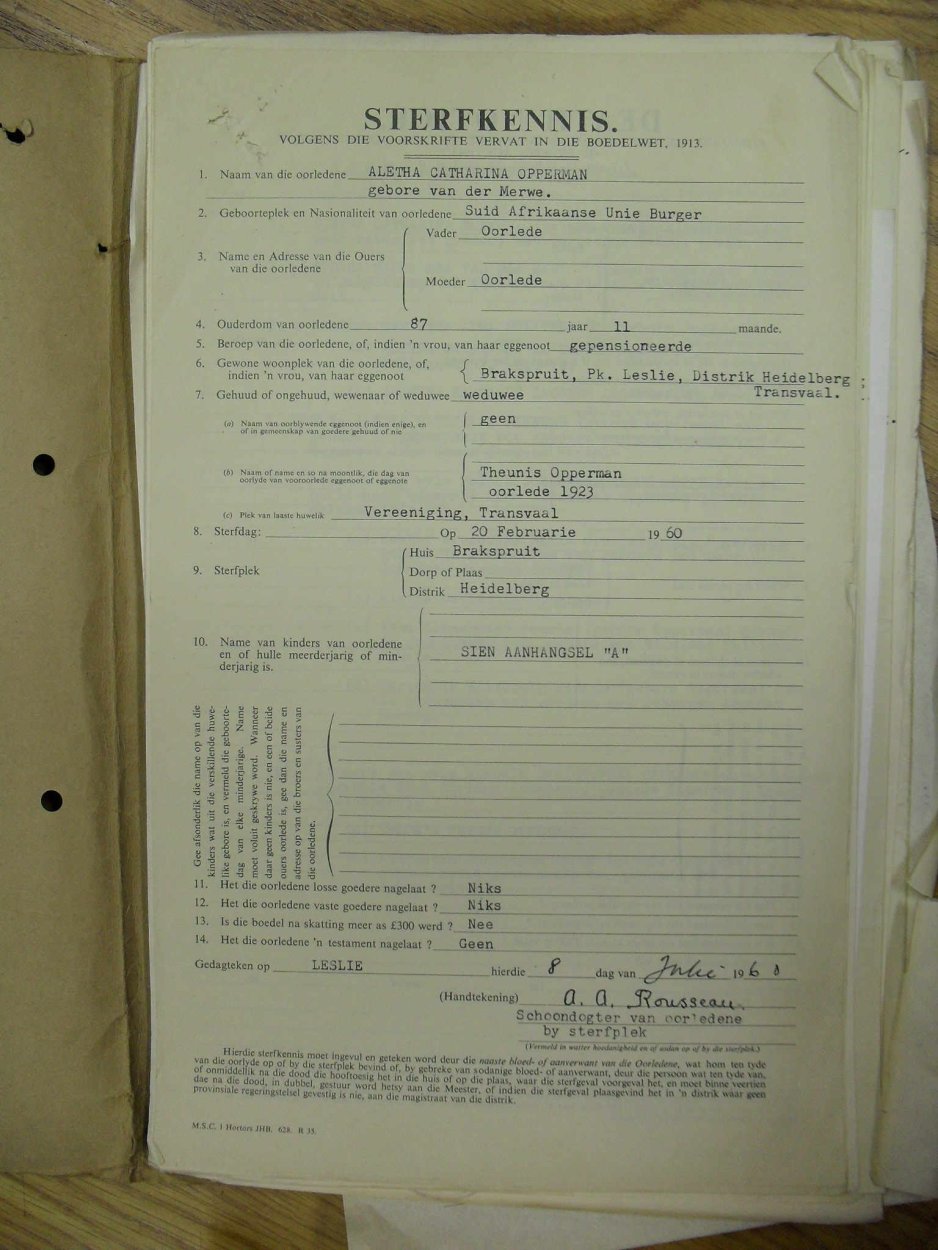 STERFKENNIS.
VOLGENS DIE VOORSKRIFTE VERVAT IN DIE BOEDELWET, 1913.
1. Naam van die oorledene ALETHA CATHARINA OPPERMAN
gebore van der Merwe.
2. Geboorteplek en Nasionaliteit van oorledene Suid Afrikaanse Unie Burger
3. Name en Adresse van die Ouers van die oorledene
Vader Oorlede
Moeder Oorlede
4. Ouderdom van oorledene 87 jaar 11 maande.
5. Beroep van die oorledene, of, indien 'n vrou, van haar eggenoot gepensioneerde
6. Gewone woonplek van die oorledene, of,
indien 'n vrou, van haar eggenoot
Brakspruit, Pk. Leslie, Distrik Heidelberg ;
Transvaal.
7. Gehuud of ongehuud, wewenaar of weduwee weduwee
(a) Naam van oorblywende eggenoot (indien enige), en
of in gemeenskap van goedere gehuud of nie
geen
(b) Naam of name en so na moontlik, die dag van
oorlyde van vooroorlede eggenoot of eggenote
Theunis Opperman
oorlede 1923
(c) Plek van laaste huwelik Vereeniging, Transvaal
8. Sterfdag: Op 20 Februarie 1960
9. Sterfplek
Huis Brakspruit
Dorp of Plaas
Distrik Heidelberg
10. Name van kinders van oorledene
en of hulle meerderjarig of min-
derjarig is.
SIEN AANHANGSEL "A"
Gee afsonderlik die name op van die
kinders wat uit die verskillende huwe-
like gebore is, en vermeld die geboorte-
dag van elke minderjarige. Name
moet voluit geskrywe word. Wanneer
daar geen kinders is nie, en een of beide
ouers oorlede is, gee dan die name en
adresse op van die broers en susters van
die oorledene.
11. Het die oorledene losse goedere nagelaat ? Niks
12. Het die oorledene vaste goedere nagelaat ? Niks
13. Is die boedel na skatting meer as £300 werd ? Nee
14. Het die oorledene 'n testament nagelaat ? Geen
Gedagteken op LESLIE hierdie 8 dag van Julie 1960
(Handtekening) A. A. Rousseau.
Schoondogter van oorledene
by sterfplek
(Vermeld in watter hoedanigheid en of aodan op of by die sterfplek.)
Hierdie sterfkennis moet ingevul en geteken word deur die naaste bloed- of aanverwant van die Oorledene, wat hom ten tyde
van die oorlyde op of by die sterfplek bevind of, by gebreke van sodanige bloed- of aanverwant, deur die persoon wat ten tyde van,
of onmiddellik na die dood die hooftoesig het in die huis of op die plaas, waar die sterfgeval voorgeval het, en moet binne veertien
dae na die dood, in dubbel, gestuur word hetsy aan die Meester, of indien die sterfgeval plaasgevind het in 'n distrik waar geen
provinsiale regeringstelsel gevestig is nie, aan die magistraat van die distrik.
M.S.C. 1 Hortors JHB. 628. R 35.